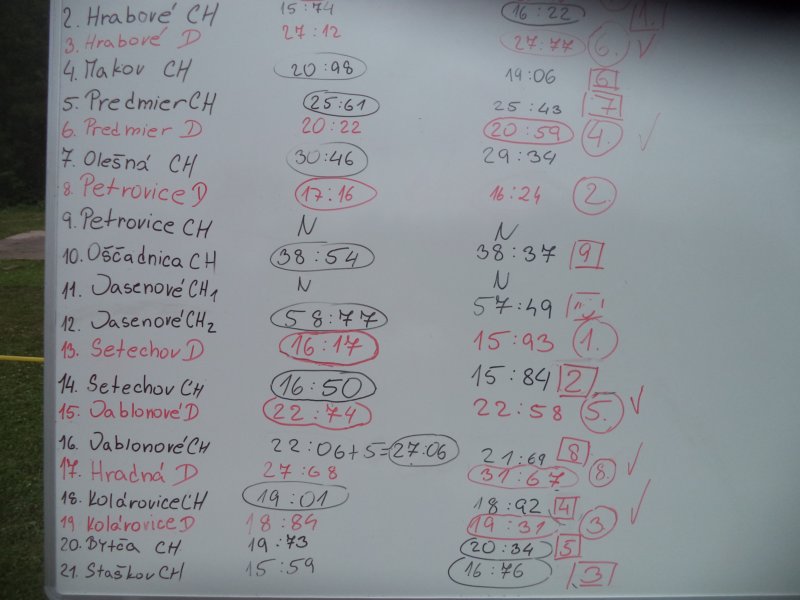 2. Hrabové CH 15:74 16:22 1.
3. Hrabové D 27:12 27:77 6.
4. Makov CH 20:98 19:06 6
5. Predmier CH 25:61 25:43 7
6. Predmier D 20:22 20:59 4.
7. Olešná CH 30:46 29:34
8. Petrovice D 17:16 16:24 2.
9. Petrovice CH N N
10. Oščadnica CH 38:54 38:37 9
11. Jasenové CH1 N N
12. Jasenové CH2 58:77 57:49
13. Setechov D 16:17 15:93 1.
14. Setechov CH 16:50 15:84 2
15. Jablonové D 22:74 22:58 5.
16. Jablonové CH 22:06+5=27:06 21:69 8
17. Hradná D 27:68 31:67 8.
18. Kolárovice CH 19:01 18:92 4
19 Kolárovice D 18:84 19:31 3
20. Bytča CH 19:73 20:34 5
21. Staškov CH 15:59 16:76 3